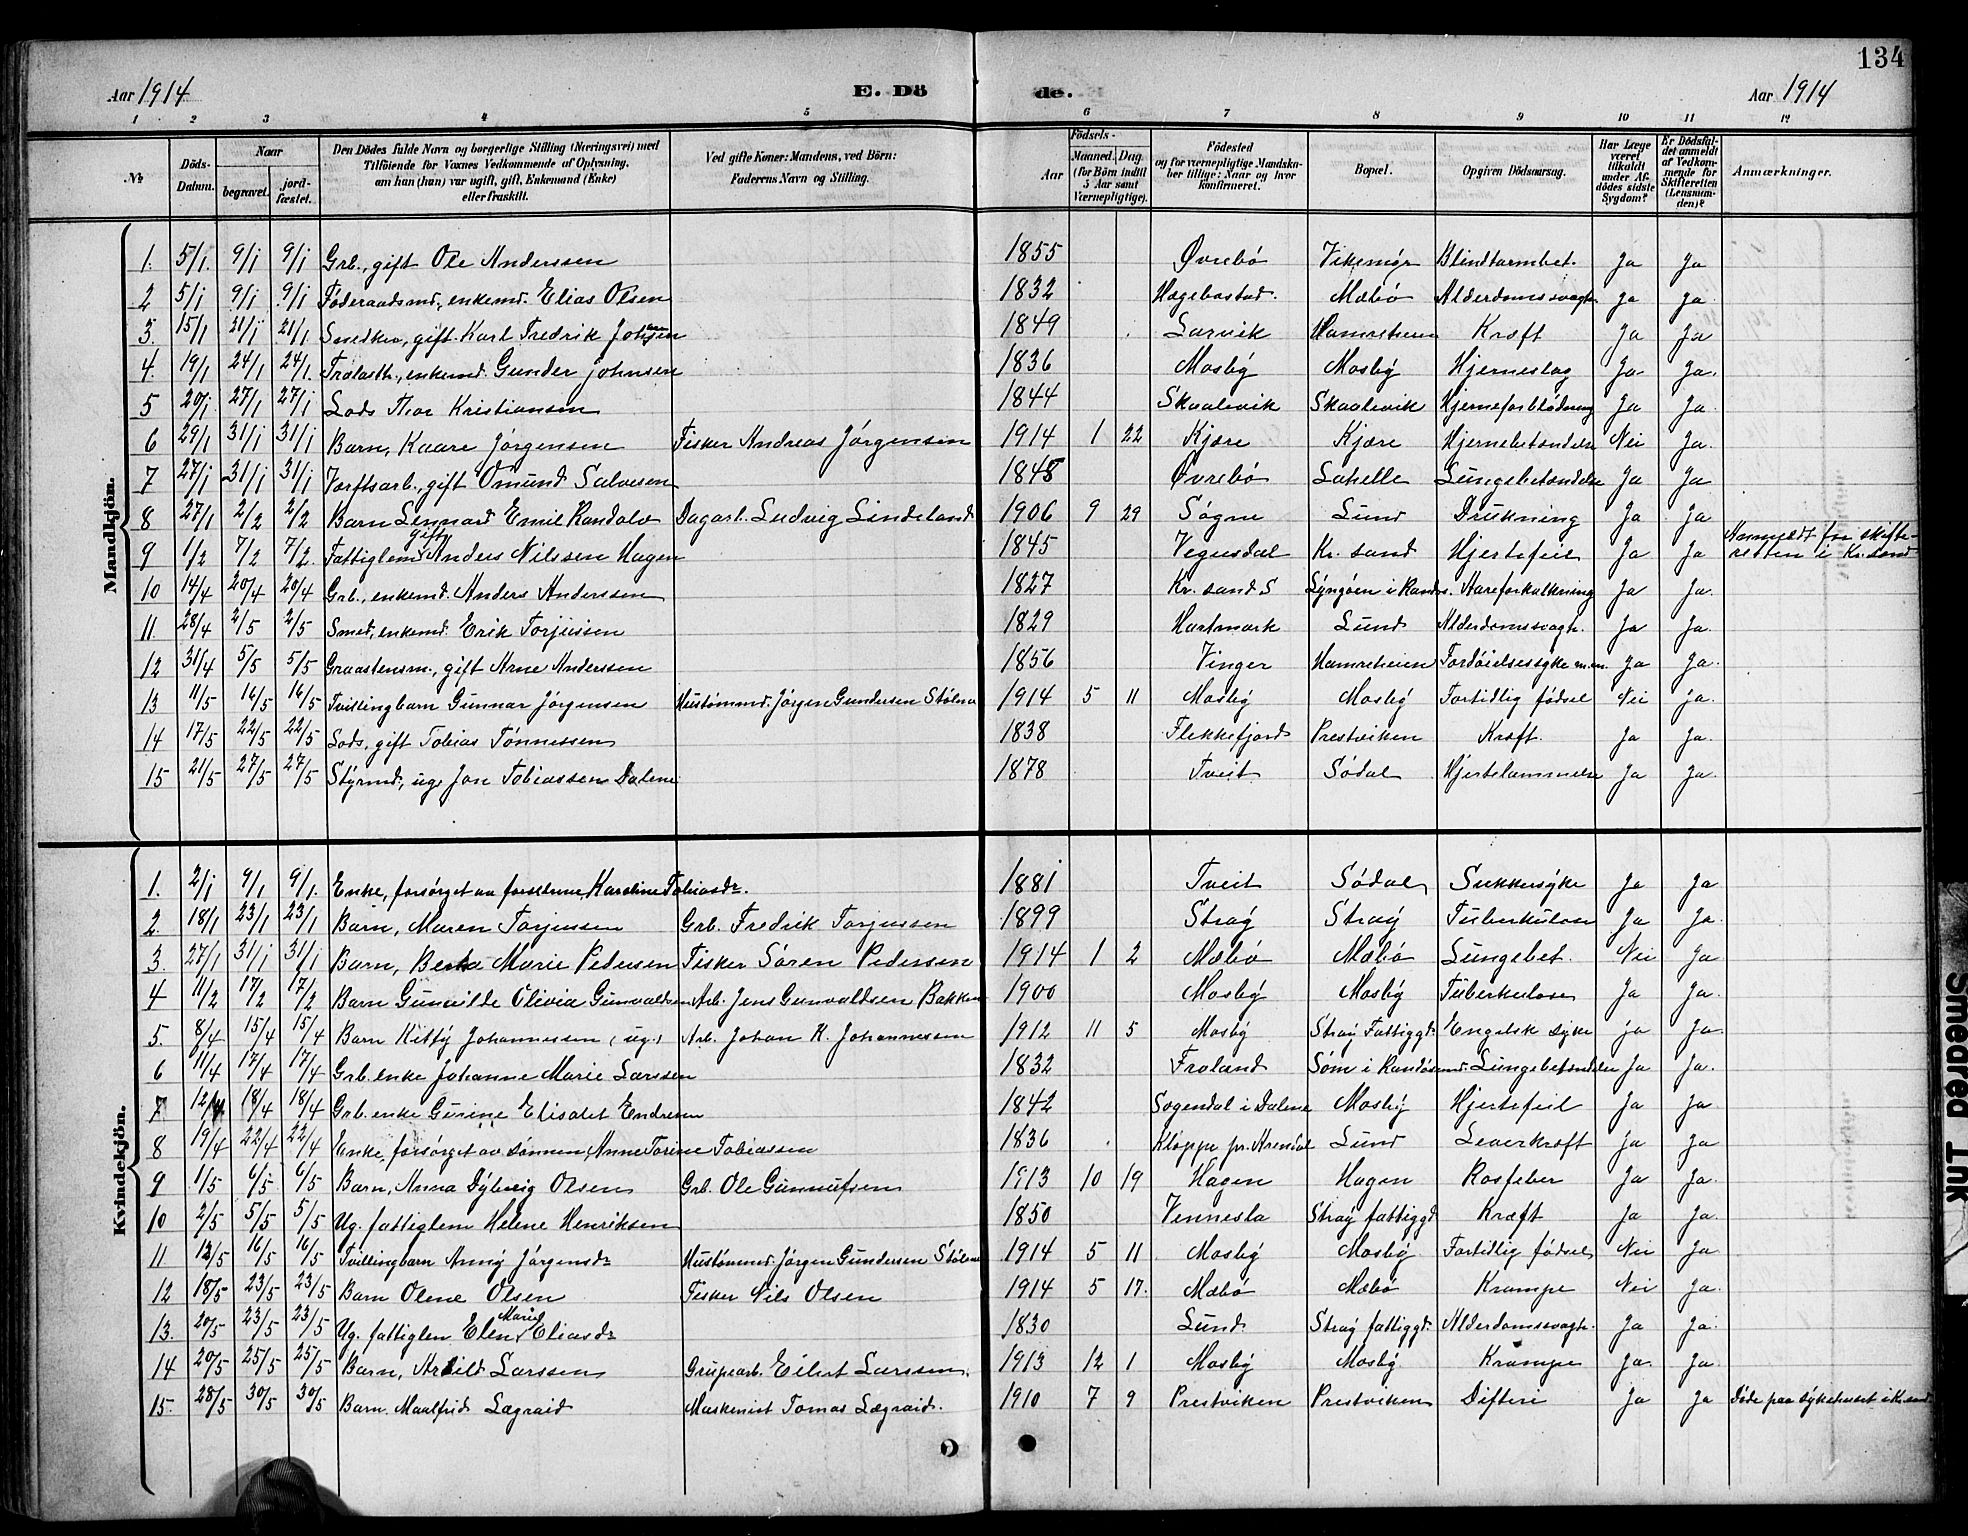 134
Aar 1914 E. Dö de. Aar 1914
1 2 3 4 5 6 7 8 9 10 11 12
№ Döds-Datum. Naar begravet. jord-fæstet. Den Dödes fulde Navn og borgerlige Stilling (Næringsvei) med Tilföiende for Voxnes Vedkommende af Oplysning, om han (hun) var ugift, gift, Enkemand (Enke) eller fraskilt. Ved gifte Koner: Mandens, ved Börn: Faderens Navn og Stilling. Födsels- Aar Maaned. Dag. (for Börn indtil 5 Aar samt Værnepligtige). Födested og for værnepligtige Mandska-ber tillige: Naar og hvor konfirmeret. Bopæl. Opgiven Dödsaarsag. Har Læge været tilkaldt under Af-dödes sidste Sygdom? Er Dödsfal-det anmeldt af Vedkom-mende for Skifteretten (Lensman-den)? Anmærkninger.
Mandkjön.
1. 5/1. 9/1 9/1 Grb., gift Ole Anderssen 1855 Øvrebø Vikemyr Blindtarmbet. Ja Ja
2 5/1 9/1 9/1 Føderaadsmd., enkemd. Elias Olsen 1832 Hægebostad. Mæbø Alderdomssvagh. Ja Ja
3. 15/1 21/1 21/1 gift. Karl Fredrik Johansen 1849 Larvik Hamreheien Kræft Ja Ja
4. 19/1 24/1 24/1. enkemd. Gunder Johnsen 1836 Mosby Mosby Hjerneslag Ja Ja.
5 20/1 27/1 27/1 Lods Thor Kristiansen 1844 Skaalevik Skaalevik Hjerneforblødning Ja Ja.
6 29/1 31/1 31/1 Barn, Kaare Jørgensen Fisker Andreas Jørgensen 1914 1 22 Kjære Kjære Hjernebetændelse Nei Ja.
7 27/1 31/1 31/1 Værftsarb., gift Omund Salvesen 1848 Øvrebø Lahelle Lungebetændelse Ja Ja
8 27/1 2/2 2/2 Barn Lennard Emil Randolv Dagarb. Ludvig Lindeland 1906 9 29 Søgne Lund Drukning Ja Ja.
9 1/2 7/2 7/2. Fattiglem gift Anders Nilssen Hagen 1845 Vegusdal Kr. sand Hjertefeil Ja Ja Anmeldt for skifte-retten i Kr. sand
10 14/4 20/4 20/4 Grb., enkemd. Anders Anderssen 1827 Kr. sand S Lyngøen i Rands. Aareforkalkning Ja Ja.
11. 28/4 2/5 2/5 Smed, enkemd. Erik Torjussen 1829 Hartmark Lund Alderdomssvagh. Ja Ja.
12 31/4 5/5 5/5 Graastensm., gift Arne Anderssen 1856 Vinger Hamreheien Fordøielsessyke m.m. Ja Ja.
13 11/5 16/5 16/5 Tvillingbarn Gunnar Jørgensen Hustømmd. Jørgen Gundersen Stølen 1914 5 11 Mosby Mosby Fortidlig fødsel Nei ja.
14 17/5 22/5 22/5 Lods, gift Tobias Tønnessen 1838 Flekkefjord Prestviken Kræft. Ja Ja.
15 21/5 27/5 27/5 Styrmd., ug. Jon Tobiassen Dalene 1878 Tveit Sødal Hjertelammelse Ja Ja.
Kvindekjön.
1. 2/1 9/1 9/1. Enke, forsørget av Karoline Tobiasdr. 1881 Tveit Sødal Sukkersyke Ja Ja
2. 18/1 23/1 23/1 Barn, Maren Torjussen Grb. Fredrik Torjussen 1899 Stray Stray Tuberkulose Ja Ja.
3. 27/1 31/1 31/1 Barn, Berta Marie Pedersen Fisker Søren Pedersen 1914 1 2 Mæbø Mæbø Lungebet. Nei Ja.
4 11/2 17/2 17/2 Barn Gunvilde Olivia Gunvaldsen Arb. Jens Gunvaldsen Bakken 1900 Mosby Mosby Tuberkulose Ja Ja.
5. 8/4 15/4 15/4 Barn Kitty Johannessen (ug.) Arb. Johan K. Johannessen 1912 11 5 Mosby Stray Fattiggd. Engelsk syke ja Ja.
6 11/4 17/4 17/4 Grb. enke Johanne Marie Larssen 1832 Froland Søm i Randøsund. Lungebetændelse Ja Ja.
7 12/4 18/4 18/4 Grb. enke Gurine Elisabet Endresen 1842 Sogendal i Dalene Mosby Hjertefeil Ja Ja
8 19/4 22/4 22/4 Enke, forsørget av sønnen, Anne Torine Tobiassen 1836 Kloppe pr. Lund Leverkræft Ja Ja
9 1/5 6/5 6/5 Barn, Anna Dybvig Olsen Grb. Ole Gunnufsen 1913 10 19 Hagen Hagen Rosfeber Ja Ja.
10 2/5 5/5 5/5 Ug. fattiglem Helene Henriksen 1850 Vennesla Stray fattiggd. Kræft Ja Ja.
11 12/5 16/5 16/5 Tvillingbarn Anny Jørgensdr Hustømmd. Jørgen Gundersen Stølen 1914 5 11 Mosby Mosby Fortidlig fødsel Nei Ja
12 18/5 23/5 23/5 Barn Olene Olsen Fisker Nils Olsen 1914 5 17. Mæbø Mæbø Krampe Nei Ja.
13. 20/5 23/5 23/5 Ug. fattiglem Elen Marie Eliasdr 1830 Lund. Stray fattiggd. Alderdomssvagh. Ja Ja.
14 20/5 25/5 25/5 Barn, Arild Larssen Grupearb. Eilert Larssen. 1913 12 1 Mosby Mosby. Krampe Ja. Ja.
15. 28/5 30/5 30/5 Barn. Maalfrid Lægraid Maskenist Tomas Lægraid. 1910 7 9 Prestviken Prestviken Difteri Ja Ja Døde paa sykehuset i Kr.sand
Smeared Ink